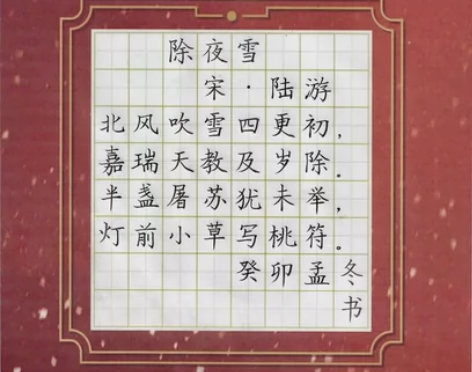 除夜雪
宋·陆游
北风吹雪四更初，
嘉瑞天教及岁除。
半盏屠苏犹未举，
灯前小草写桃符。
癸卯孟冬
书